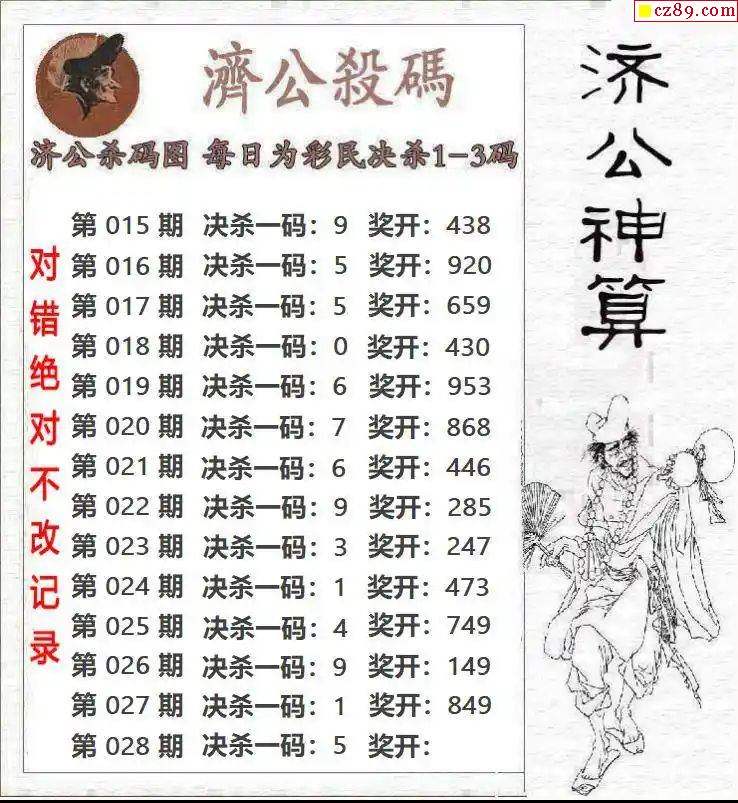 cz89.com
濟公殺碼
济公杀码图 每日为彩民决杀1-3码
第 015 期 决杀一码：9 奖开：438
第 016 期 决杀一码：5 奖开：920
第 017 期 决杀一码：5 奖开：659
第 018 期 决杀一码：0 奖开：430
第 019 期 决杀一码：6 奖开：953
第 020 期 决杀一码：7 奖开：868
第 021 期 决杀一码：6 奖开：446
第 022 期 决杀一码：9 奖开：285
第 023 期 决杀一码：3 奖开：247
第 024 期 决杀一码：1 奖开：473
第 025 期 决杀一码：4 奖开：749
第 026 期 决杀一码：9 奖开：149
第 027 期 决杀一码：1 奖开：849
第 028 期 决杀一码：5 奖开：
对错绝对不改记录
济公神算